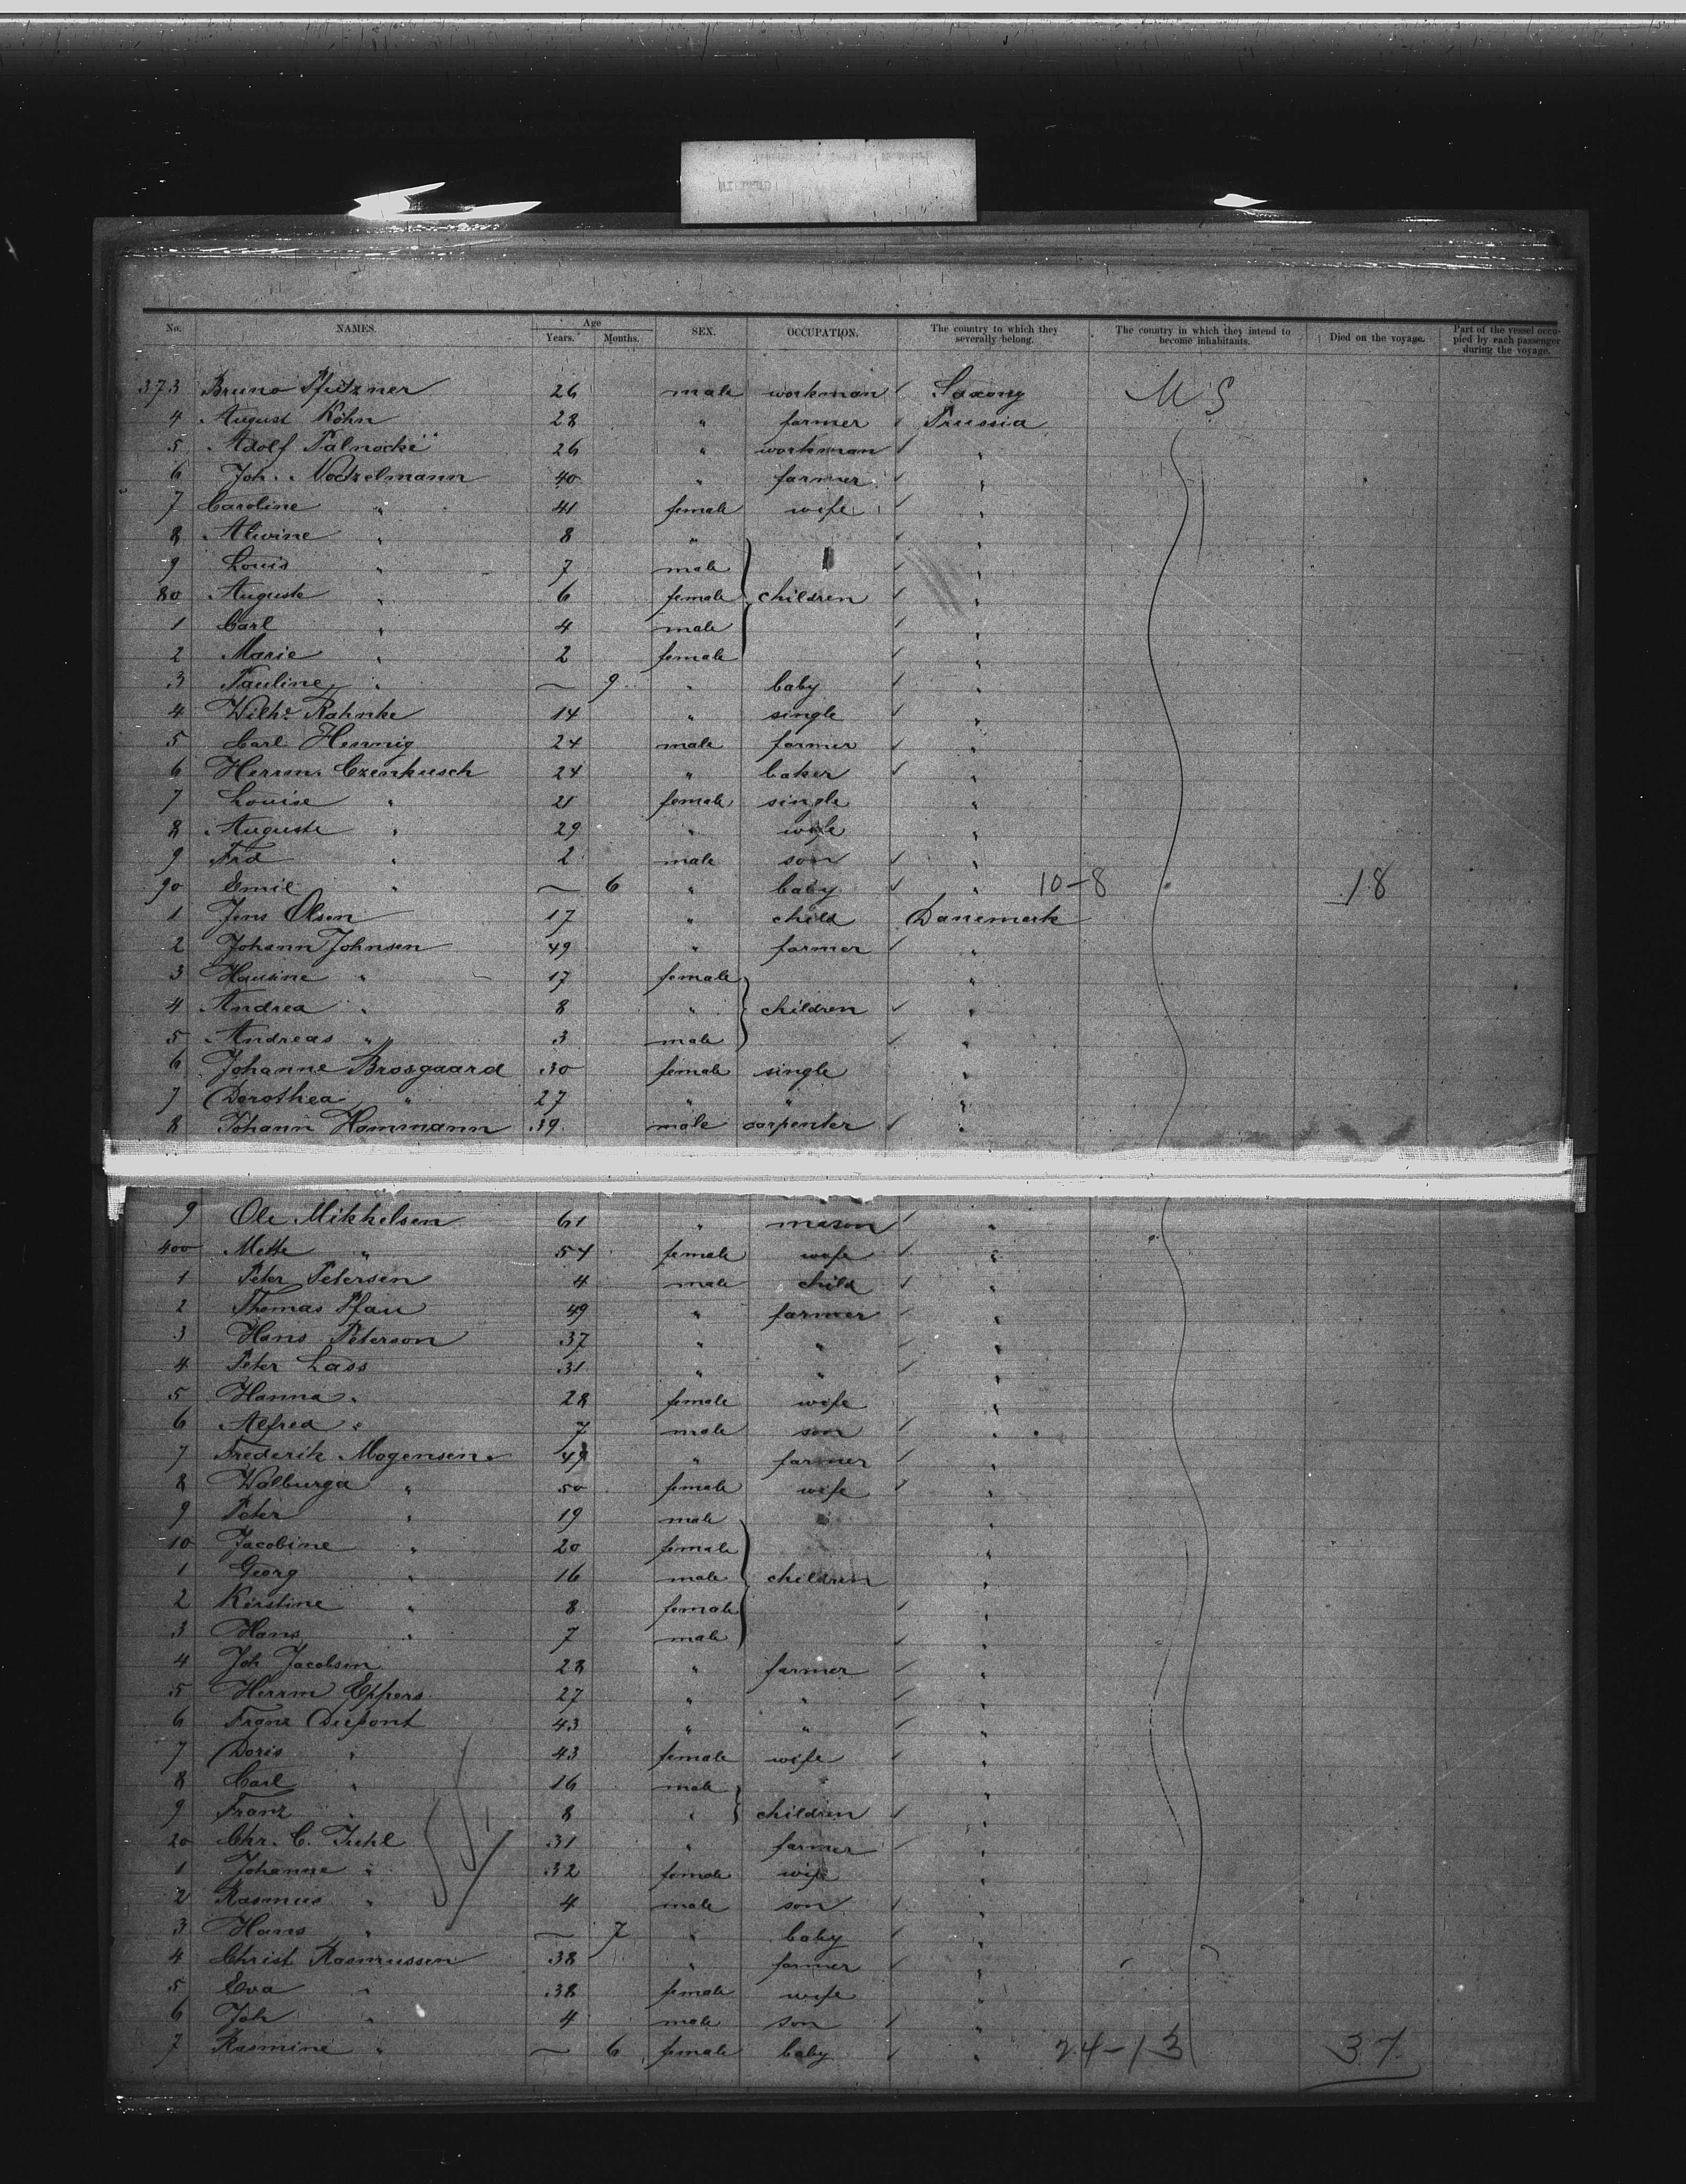 No. NAMES. Age Years. Months. SEX. OCCUPATION. The country to which they severally belong. The country in which they intend to become inhabitants. Died on the voyage. Part of the vessel occupied by each passenger during the voyage.
373 Bruno Pfutzner 26 male workman Saxony U S
4 August Köhn 28 " farmer Prussia
5 Adolf Palnocki 26 " workman "
6 Joh. Noetzelmann 40 " farmer "
7 Caroline " 41 female wife "
8 Alwine " 8 " "
9 Louis " 7 male "
80 Auguste " 6 female children "
1 Carl " 4 male "
2 Marie " 2 female "
3 Pauline " — 9 " baby "
4 Wilhe Rahnke 14 " single "
5 Carl Hennig 24 male farmer "
6 Herrm. Czenkusch 24 " baker "
7 Louise " 21 female single "
8 Auguste " 29 " wife "
9 Frd " 2 male son "
90 Emil " — 6 " baby " 10-8 18
1 Jens Olsen 17 " child Danemark
2 Johann Johnsen 49 " farmer "
3 Hansine " 17 female "
4 Andrea " 8 " children "
5 Andreas " 3 male "
6 Johanne Brosgaard 30 female single "
7 Dorothea " 27 " " "
8 Johann Hammann 39 male carpenter "
9 Ole Mikkelsen 61 " mason "
400 Mette " 54 female wife "
1 Peter Petersen 4 male child "
2 Thomas Pfau 49 " farmer "
3 Hans Peterson 37 " " "
4 Peter Lass 31 " " "
5 Hanna " 28 female wife "
6 Alfred " 7 male son "
7 Frederik Mogensen 49 " farmer "
8 Walburga " 50 female wife "
9 Peter " 19 male "
10 Jacobine " 20 female "
1 Georg " 16 male children "
2 Kirstine " 8 female "
3 Hans " 7 male "
4 Joh Jacobsen 28 " farmer "
5 Herrm Eppers 27 " " "
6 Franz Diepont 43 " " "
7 Doris " 43 female wife "
8 Carl " 16 male "
9 Franz " 8 " children "
20 Chr. C. Juhl 31 " farmer "
1 Johanne " 32 female wife "
2 Rasmus " 4 male son "
3 Hans " — 7 " baby "
4 Christ Rasmussen 38 " farmer "
5 Eva " 38 female wife "
6 Joh " 4 male son "
7 Rasmine " — 6 female baby " 24-13 37